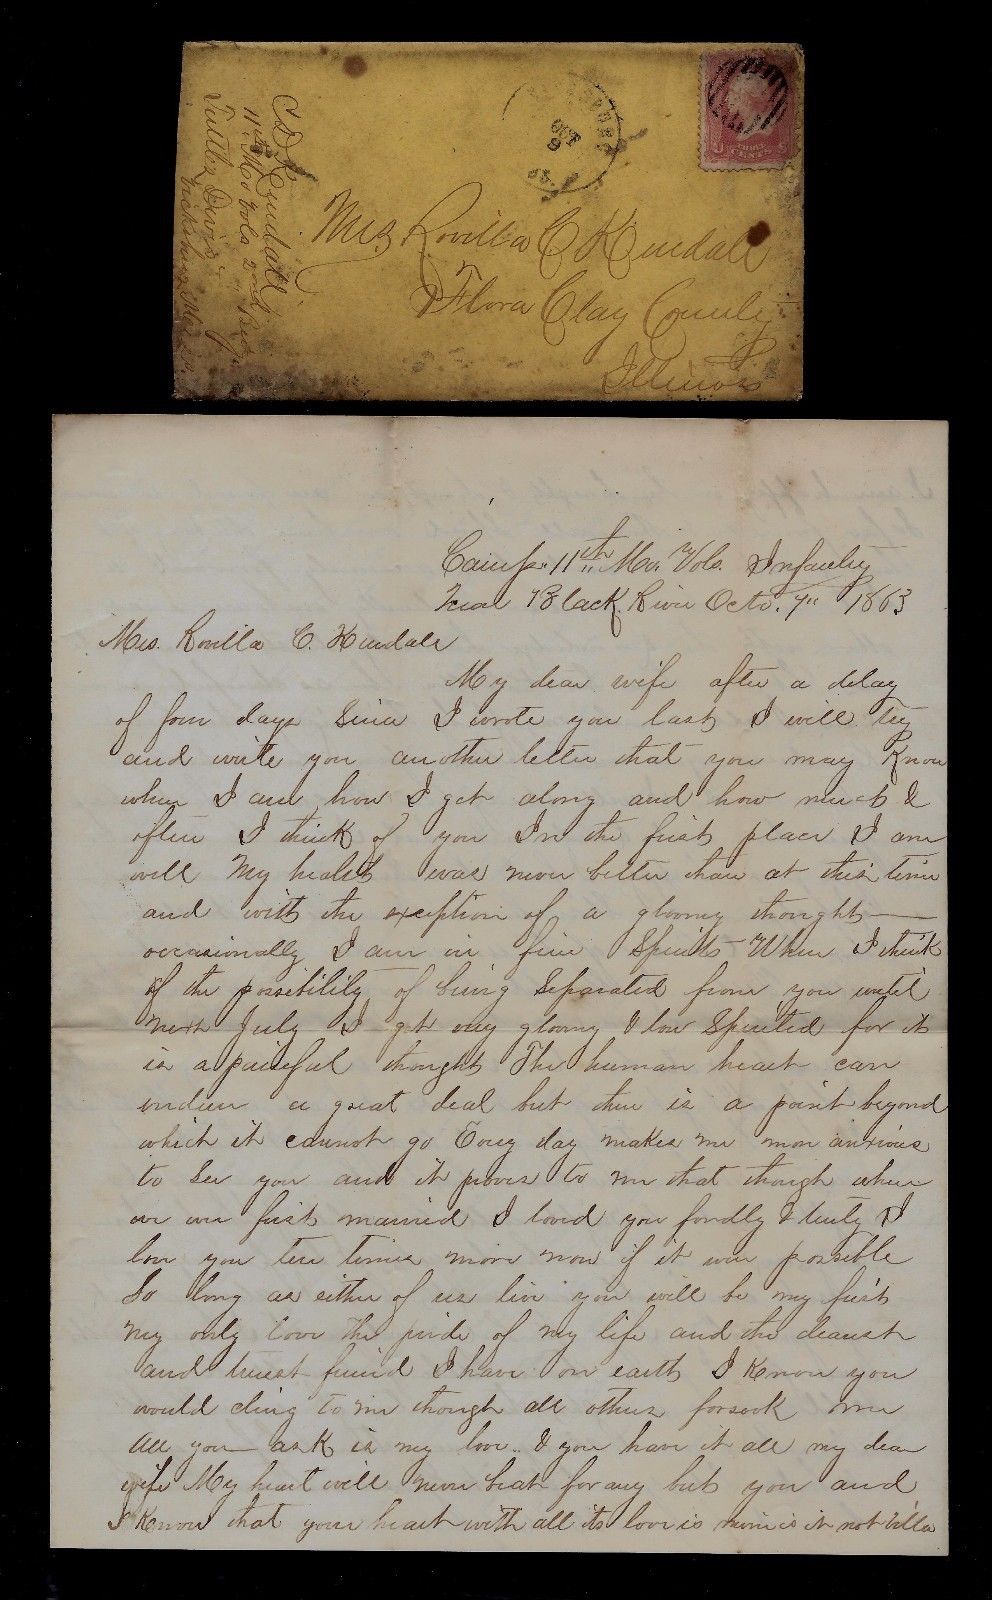 C D Kendall
11th Mo Vols 2nd Brig
Tuttles Divis
Vicksburg Miss
OCT
9
THREE
CENTS
Mrs Rovilla C Kendall
Flora Clay County
Illinois
Camp 11th Mo. Vols. Infantry
Near Black River Octo. 7" 1863
Mrs. Rovilla C. Kendall
My dear wife after a delay
of four days since I wrote you last I will try
and write you another letter that you may Know
where I am how I get along and how much &
often I think of you In the first place I am
well My health was never better than at this time
and with the exception of a gloomy thought
occasionally I am in fine Spirits When I think
of the possibility of being Separated from you until
next July I get very gloomy & low Spirited for it
is a painful thought The human heart can
endure a great deal but there is a point beyond
which it cannot go Every day makes me more anxious
to See you and it proves to me that though when
we were first married I loved you fondly & truly I
love you ten times more now if it were possible
So long as either of us live you will be my first
my only love the pride of my life and the dearest
and truest friend I have on earth I Know you
would cling to me though all others forsook me
All you ask is my love & you have it all my dear
wife My heart will never beat for any but you and
I Know that your heart with all its love is mine is it not Villa